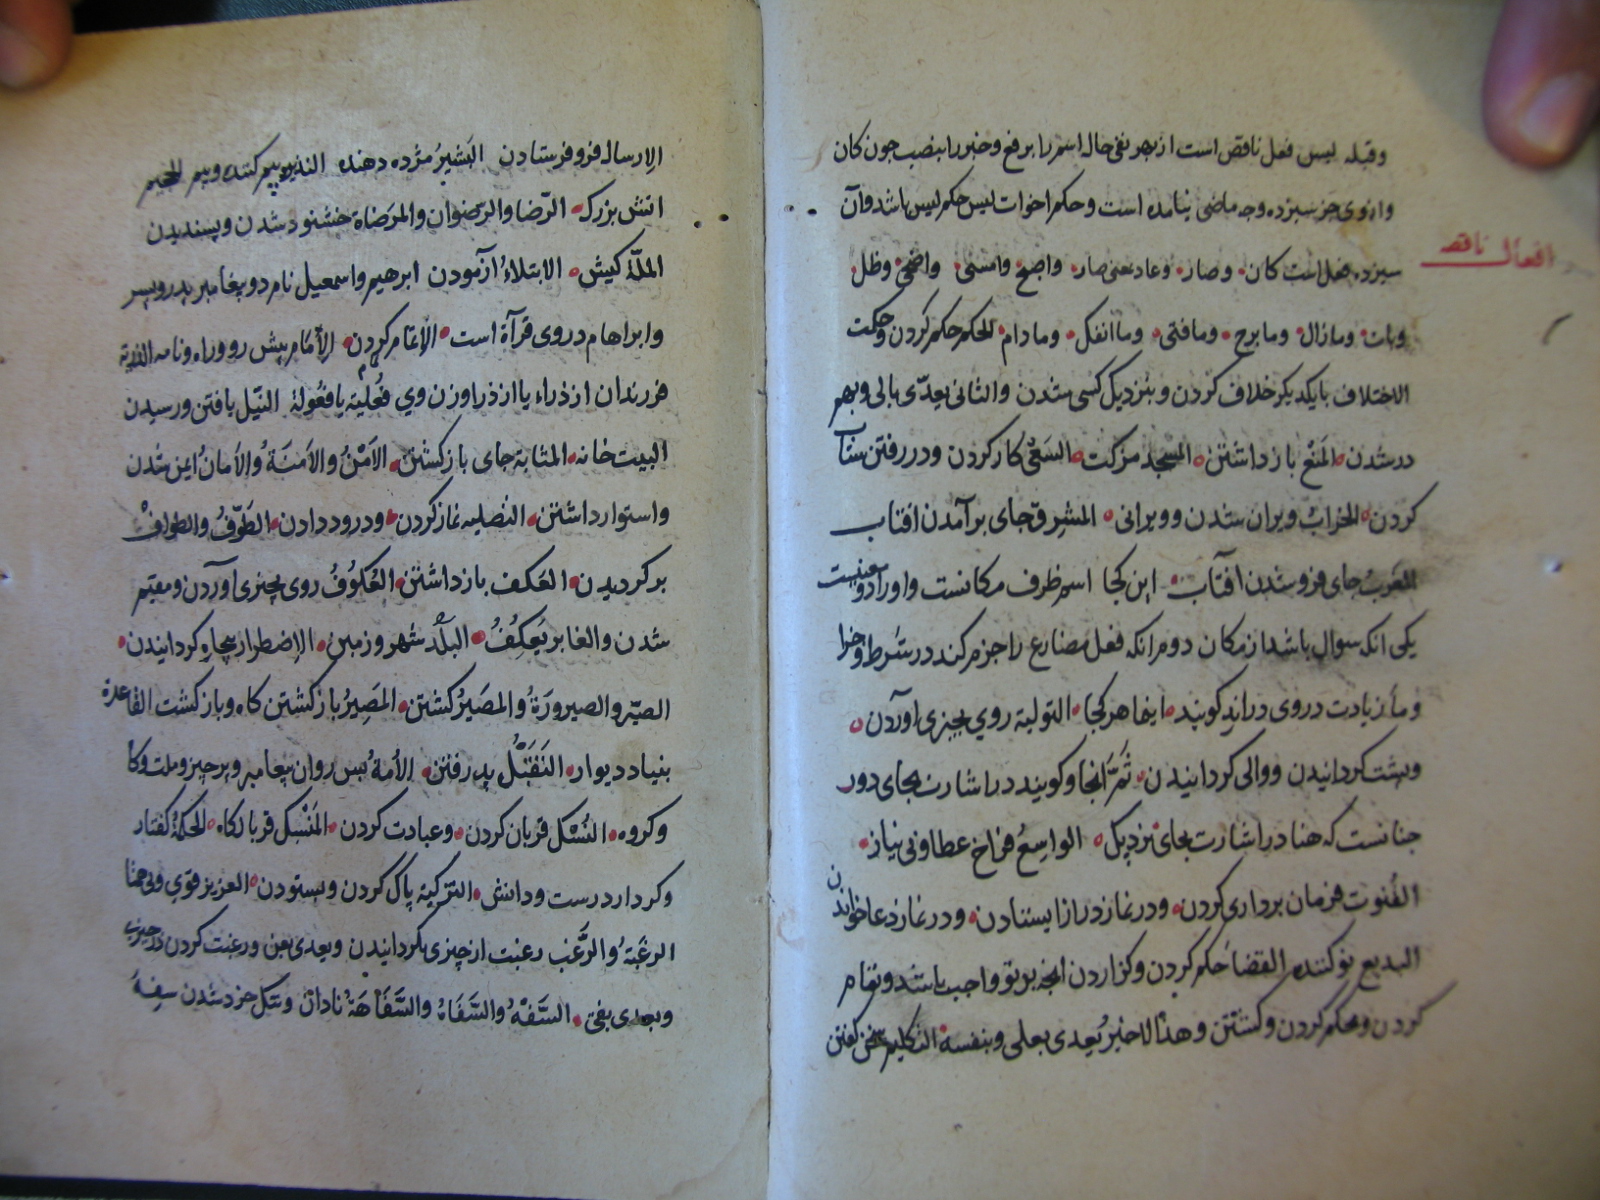 وقبله ليس فعل ناقص است از بهر نفى حاله اسم را برفع وخبر را بنصب جون كان
واز وى جز سيزده وجه ماضى نيامده است وحكم اخوات ليس حكم ليس باشد وآن
افعال ناقصه
سيزده فعل است كان وصار وعاد بمعنى صار واصبح وامسى واضحى وظل
وبات ومازال ومابرح ومافتى وماانفك ومادام الحكم حكم كردن وحكمت
الاختلاف با يكديكر خلاف كردن وبنزديك كسى شدن والثانى يعدّى بالى وبهم
درشدن المَنْع باز داشتن المسجد مزكت السَعْى كار كردن ودر رفتن شتاب
كردن الخرابُ ويران شدن وويرانى المشرِق جاى برآمدن افتاب
المغرب جاى فرو شدن افتاب اين كجا اسم ظرف مكانست واورا دو معنيست
يكى انكه سوال باشد از مكان دوم انكه فعل مضارع را جزم كند در شرط وجزا
وما زيادت در وى درايد كويند اينما هر كجا التولية روي بچيزى آوردن
وپشت كردانيدن ووالى كردانيدن ثَمَّ آنجا وكويند در اشارت بجاى دور
جنانست كه هنا در اشارت بجاى نزديك الواسِعُ فراخ عطا وبى نياز
القُنوت فرمان بردارى كردن ودر نماز دراز ايستادن ودر نماز دعا خواندن
البديع نو كننده القضا حكم كردن وكزاردن انچه بر تو واجب باشد وتمام
كردن ومحكم كردن وكشتن وهذا الاخير يُعدى بعلى وبنفسه التكليم سخن كفتن
الارسال فرو فرستادن البَشيرُ مژده دهنده النذير بيم كننده وبيم الجحيم
اتش بزرك الرّضا والرّضوان والمرَضاة خشنود شدن وپسنديدن
الملّة كيش الابتلاءُ ازمودن ابرهيم واسمعيل نام دو پيغامبر پدر وپسر
وابراهام در وى قرآة است الاتمام تمام كردن الاِمام پيش رو وراه ونامه الذرية
فرزندان از ذراء يا از ذر اوزن وي فُعْلية يا فَعُولة النَيْل يافتن ورسيدن
البيت خانه المثابة جاى باز كشتن الاَمْنُ والاَمَنَةُ والاَمانُ ايمن شدن
واستوار داشتن التصليه نماز كردن ودرود دادن الطَوْفُ والطوافْ
بر كرديدن العَكف باز داشتن العُكوُفُ روى بچيزى آوردن ومقيم
شدن والغابر يَعكِفُ البلَد شهر وزمين الاِضطرار بيچاره كردانيدن
الصيْر والصيرورَةُ والمصَيرُ كشتن المصَيِرُ باز كشتن كاه وباز كشت القاعدة
بنياد ديوار التَقَبُّل پذرفتن الاُمةُ پس روان پيغامبر وپرچيز وملت وكا
وكروه النُسْك قربان كردن وعبادت كردن المَنْسِك قربان كاه الحكمةُ كفتار
وكردار درست ودانش التزكية پاك كردن وبستودن العزيز قوي وبى همتا
الرغَبةُ والرَّغبَ رغبت از چيزى بكردانيدن ويعدى بعن ورغبت كردن در چيزى
ويعدى بفى السَّفَهُ والسَّفَاهُ والسَّفَاهَةُ نادان وتنك خرد شدن سفِهَ